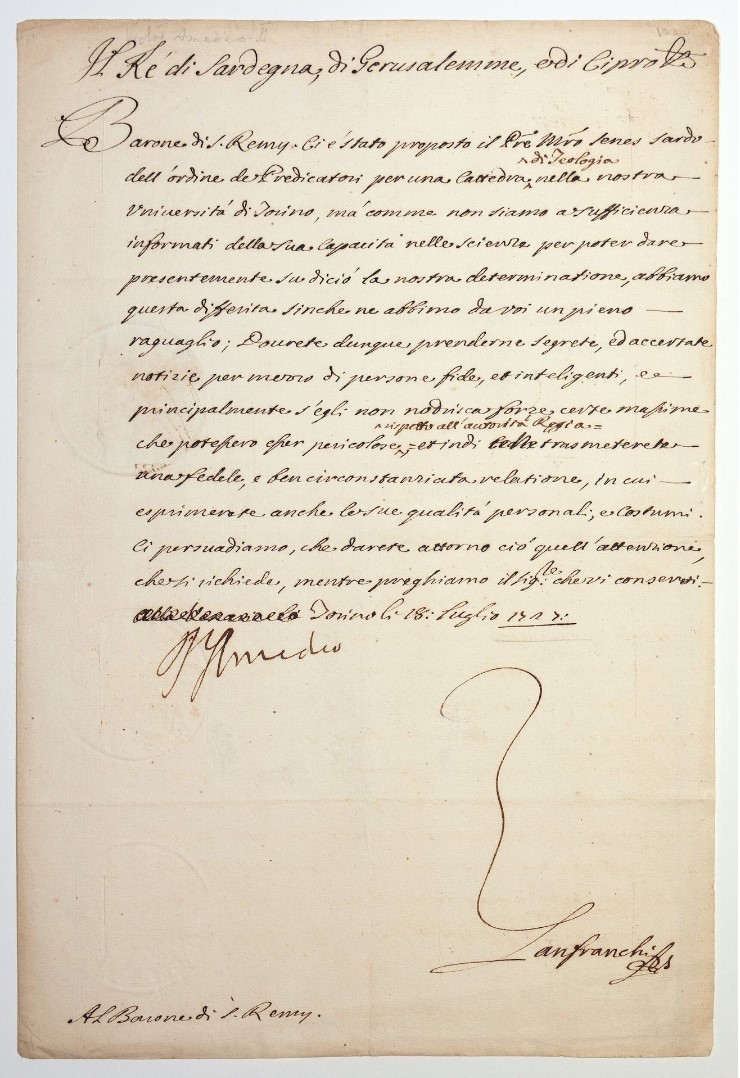 Il Ré di Sardegna, di Gerusalemme, e di Cipro &c
Barone di S. Remy. Ci é stato proposto il Prẽ Mrõ Senes sardo
^ di Teologia
dell'ordine de Predicatori per una Cattedra ^ nella nostra
Università di Torino, má comme non siamo a sufficienza
informati della sua Capacità nelle scienze per poter dare
presentemente su di ció la nostra determinatione, abbiamo
questa differita sinche ne abbimo da voi un pieno
raguaglio; Dovrete dunque prenderne segrete, ed accertate
notizie per mezzo di persone fide, et inteligenti, e
principalmente s'egli non nodrisca forze certe massime
^ rispetto all'autorità Regia =
che potessero esser pericolose, = et indi trasmeterete
una fedele, e ben circonstanziata relatione, in cui
esprimerete anche le sue qualità personali, e Costumi.
Ci persuadiamo, che darete attorno ció quell'attenzione,
che si richiede, mentre preghiamo il Sig.re che vi conservi.
Torino li 18: Luglio 1727:
V Amedeo
Lanfranchi
Al Barone di S. Remy.